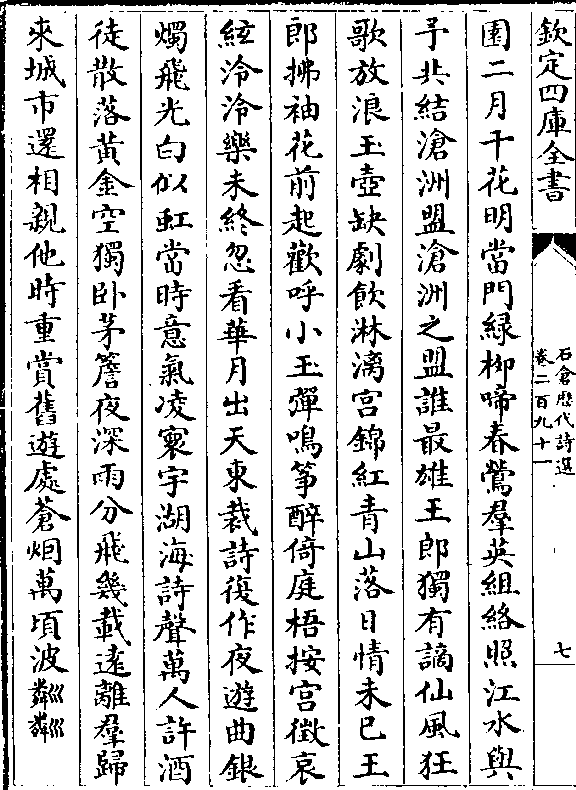 欽定四庫全書
石倉歷代詩選
卷二百九十一
七
園二月千花明當門緑柳啼春鶯羣英組絡照江水與
予共結滄洲盟滄洲之盟誰最雄王郎獨有謫仙風狂
歌放浪玉壺缺劇飲淋漓宫錦紅青山落日情未已王
郎拂袖花前起歡呼小玉彈鳴筝醉倚庭梧按宫徵哀
絃泠泠樂未終忽看華月出天東裁詩復作夜遊曲銀
燭飛光白似虹當時意氣凌寰宇湖海詩聲萬人許酒
徒散落黃金空獨卧茅簷夜深雨分飛幾載遠離羣歸
來城市還相親他時重賞舊遊處蒼烟萬頃波粼粼